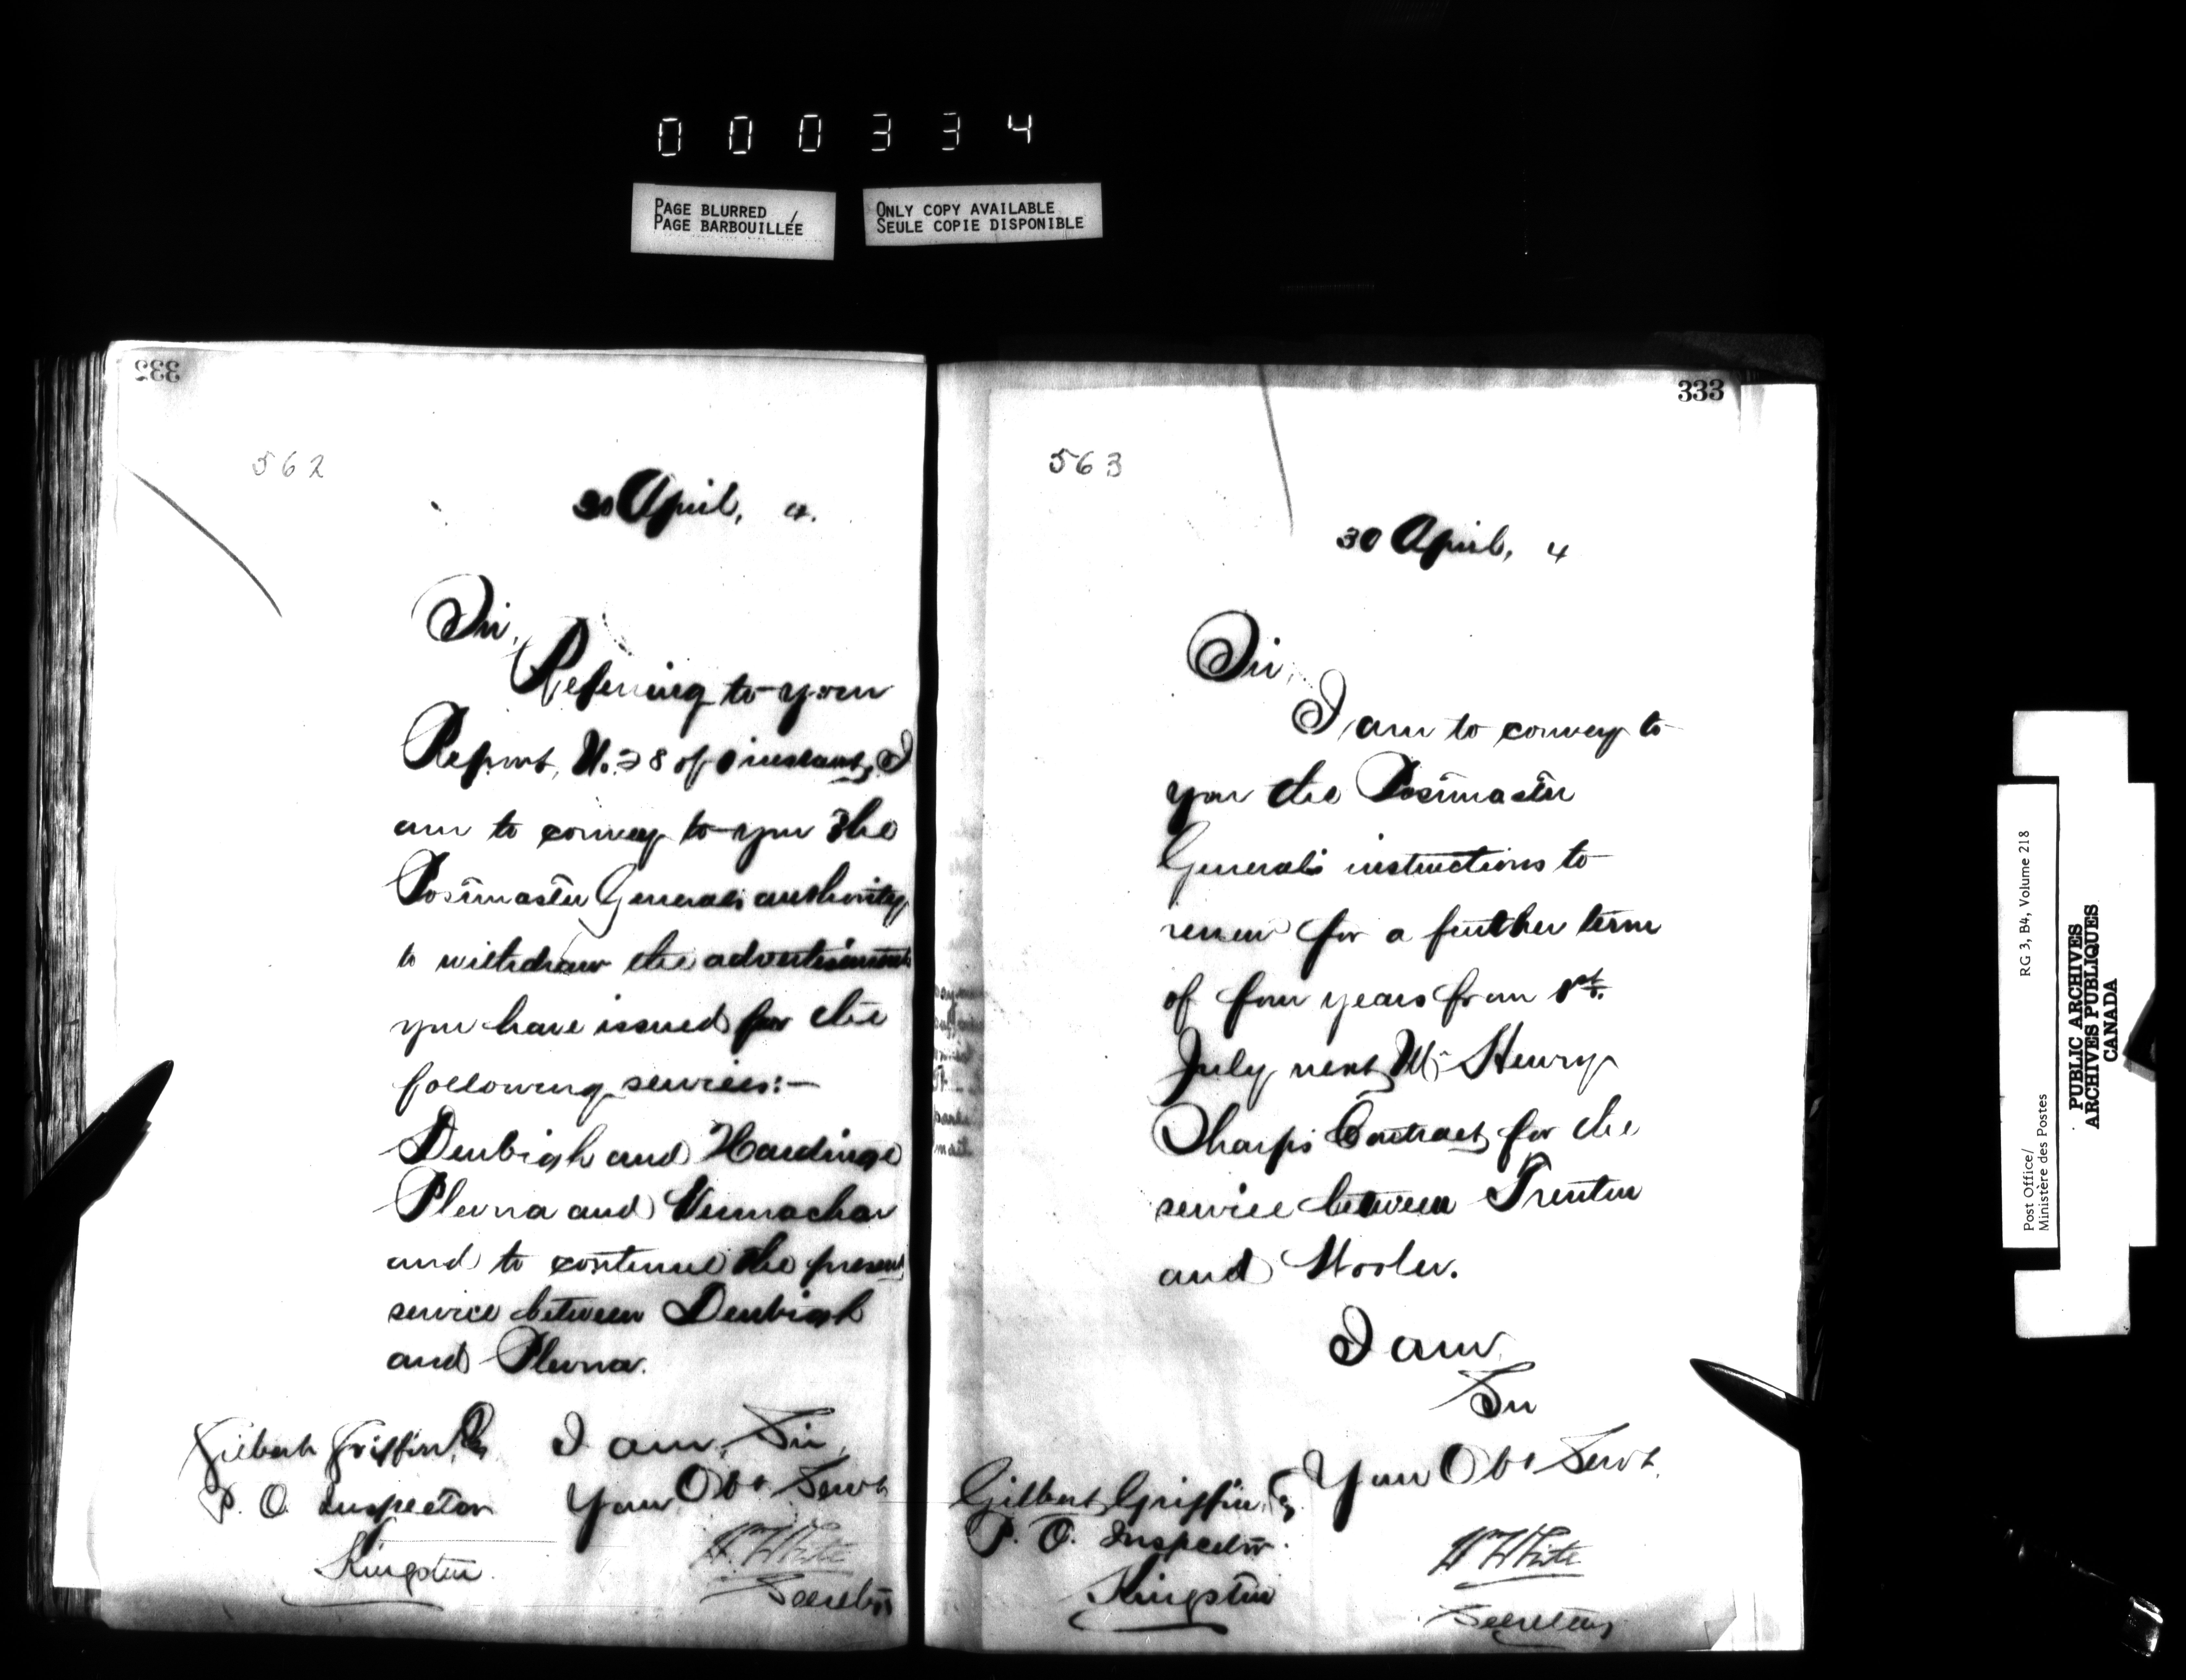 000334
PAGE BLURRED
PAGE BARBOUILLÉE
ONLY COPY AVAILABLE
SEULE COPIE DISPONIBLE
332
562
30 April, 4.
Sir,
Referring to your
Report, No. 28 of instant, I
am to convey to you the
Postmaster Generals authority
to withdraw the advertisements
you have issued for the
following services:—
Denbigh and Hardinge
Plevna and Vennachar
and to continue the present
service between Denbigh
and Plevna.
I am, Sir,
Your Obt Servt
Gilbert Griffin, Esq
P. O. Inspector
Kingston.
W White
Secretary
333
563
30 April, 4
Sir,
I am to convey to
you the Postmaster
General's instructions to
renew for a further term
of four years from 1st.
July next, Mr Henry
Sharp's Contract for the
service between Trenton
and Wooler.
I am,
Sir
Your Obt Servt.
Gilbert Griffin, Esq.
P. O. Inspector.
Kingston
W White
Secretary
Post Office/
Ministère des Postes
RG 3, B4, Volume 218
PUBLIC ARCHIVES
ARCHIVES PUBLIQUES
CANADA